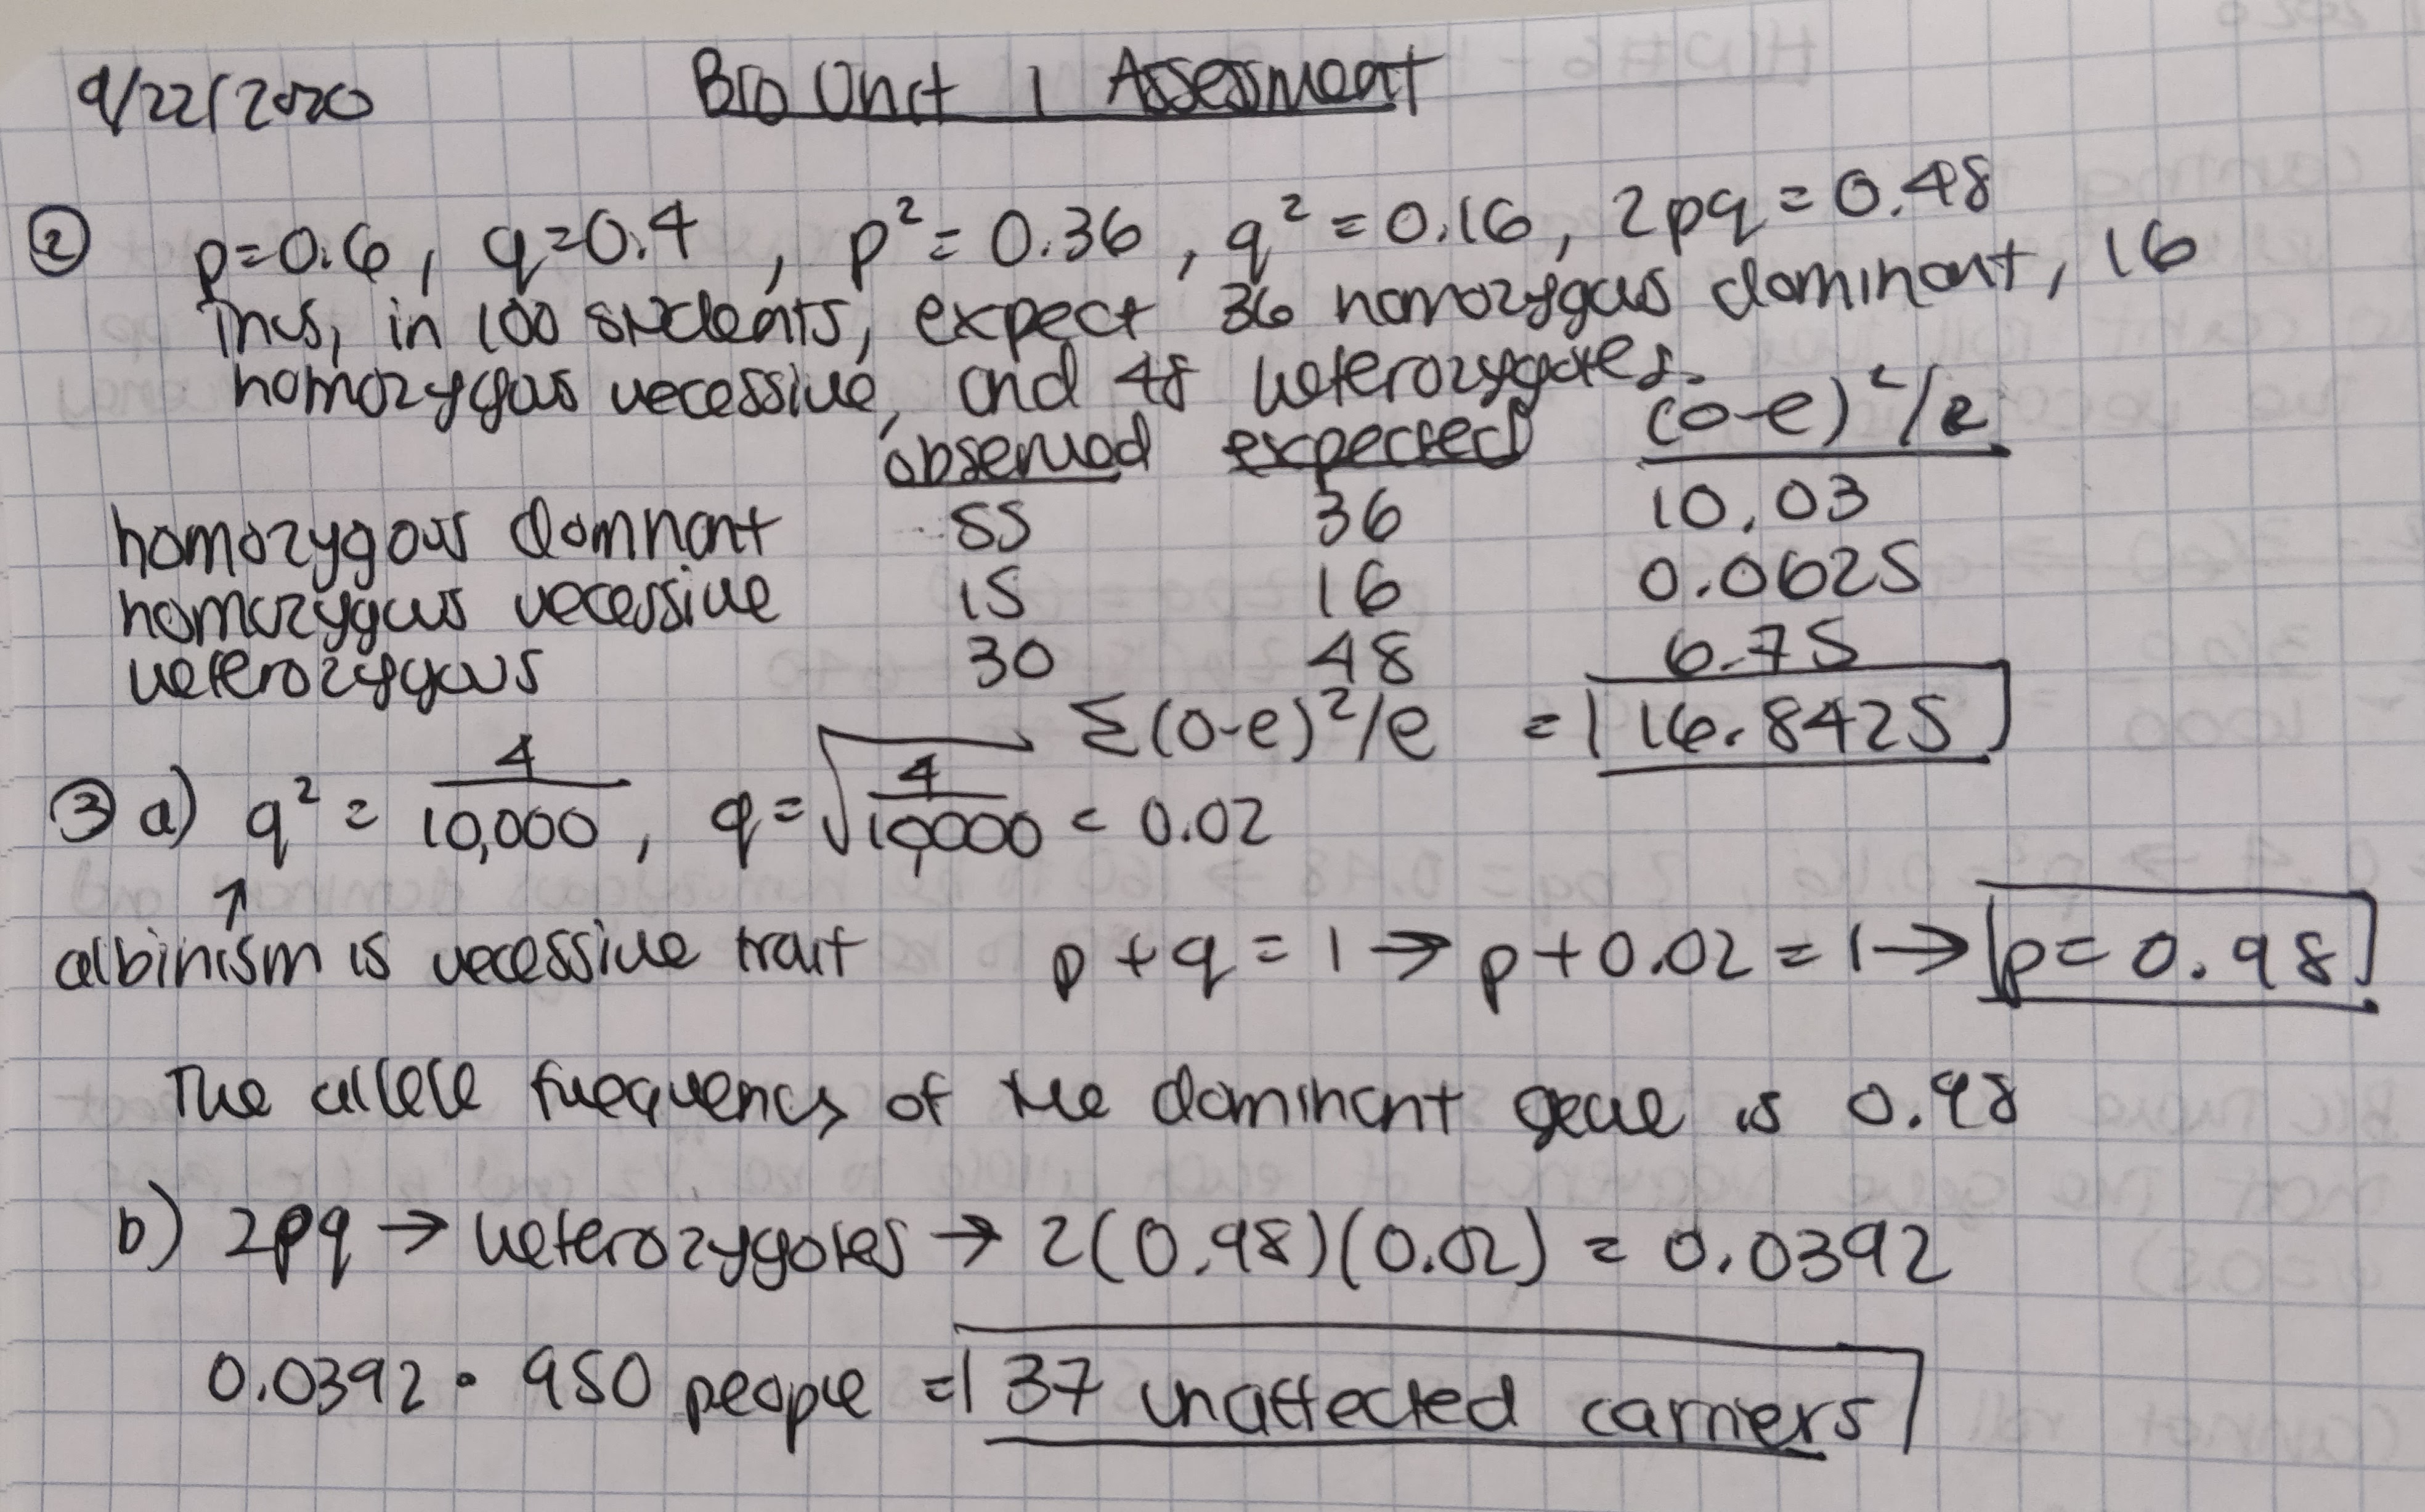 9/22/2020 Bio Unit 1 Assessment
② p=0.6, q=0.4, p²= 0.36, q² = 0.16, 2pq = 0.48
Thus, in 100 students, expect 36 homozygous dominant, 16
homozygous recessive, and 48 heterozygotes.
observed expected (o-e)²/e
homozygous dominant 55 36 10.03
homozygous recessive 15 16 0.0625
heterozygous 30 48 6.75
Σ(o-e)²/e = 16.8425
③ a) q² = 4/10,000, q = √4/10,000 = 0.02
↑
albinism is recessive trait p + q = 1 → p + 0.02 = 1 → p = 0.98
The allele frequency of the dominant gene is 0.98
b) 2pq → heterozygotes → 2(0.98)(0.02) = 0.0392
0.0392 • 950 people = 37 unaffected carriers